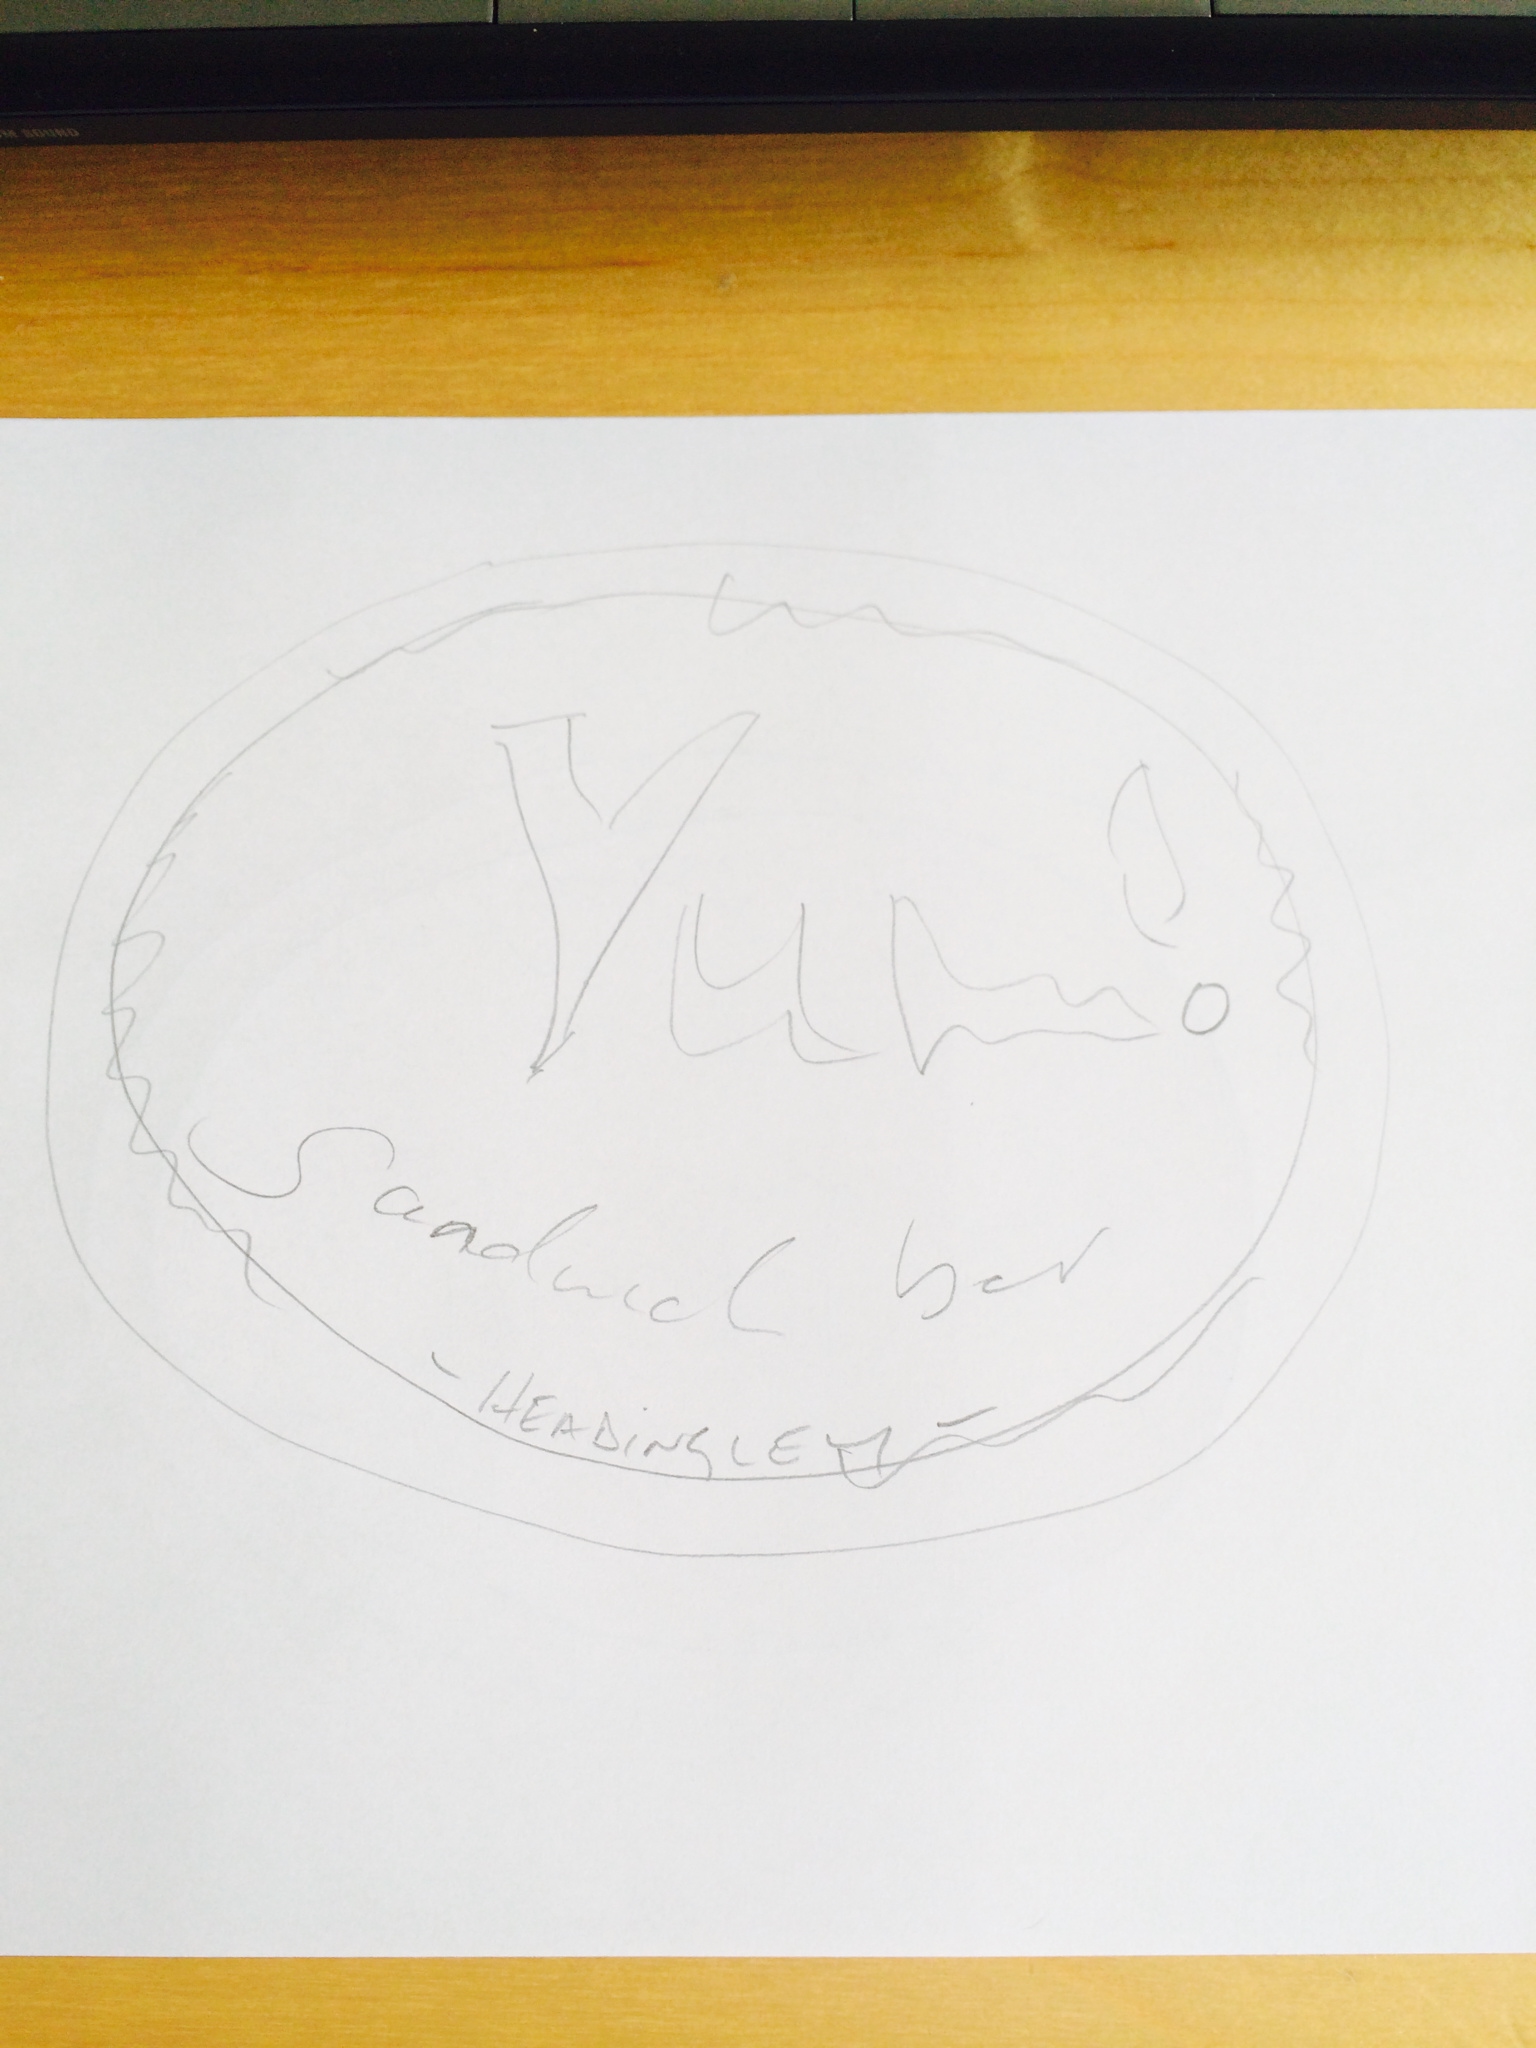 M SOUND
Yum!
Sandwich bar
- HEADINGLEY -